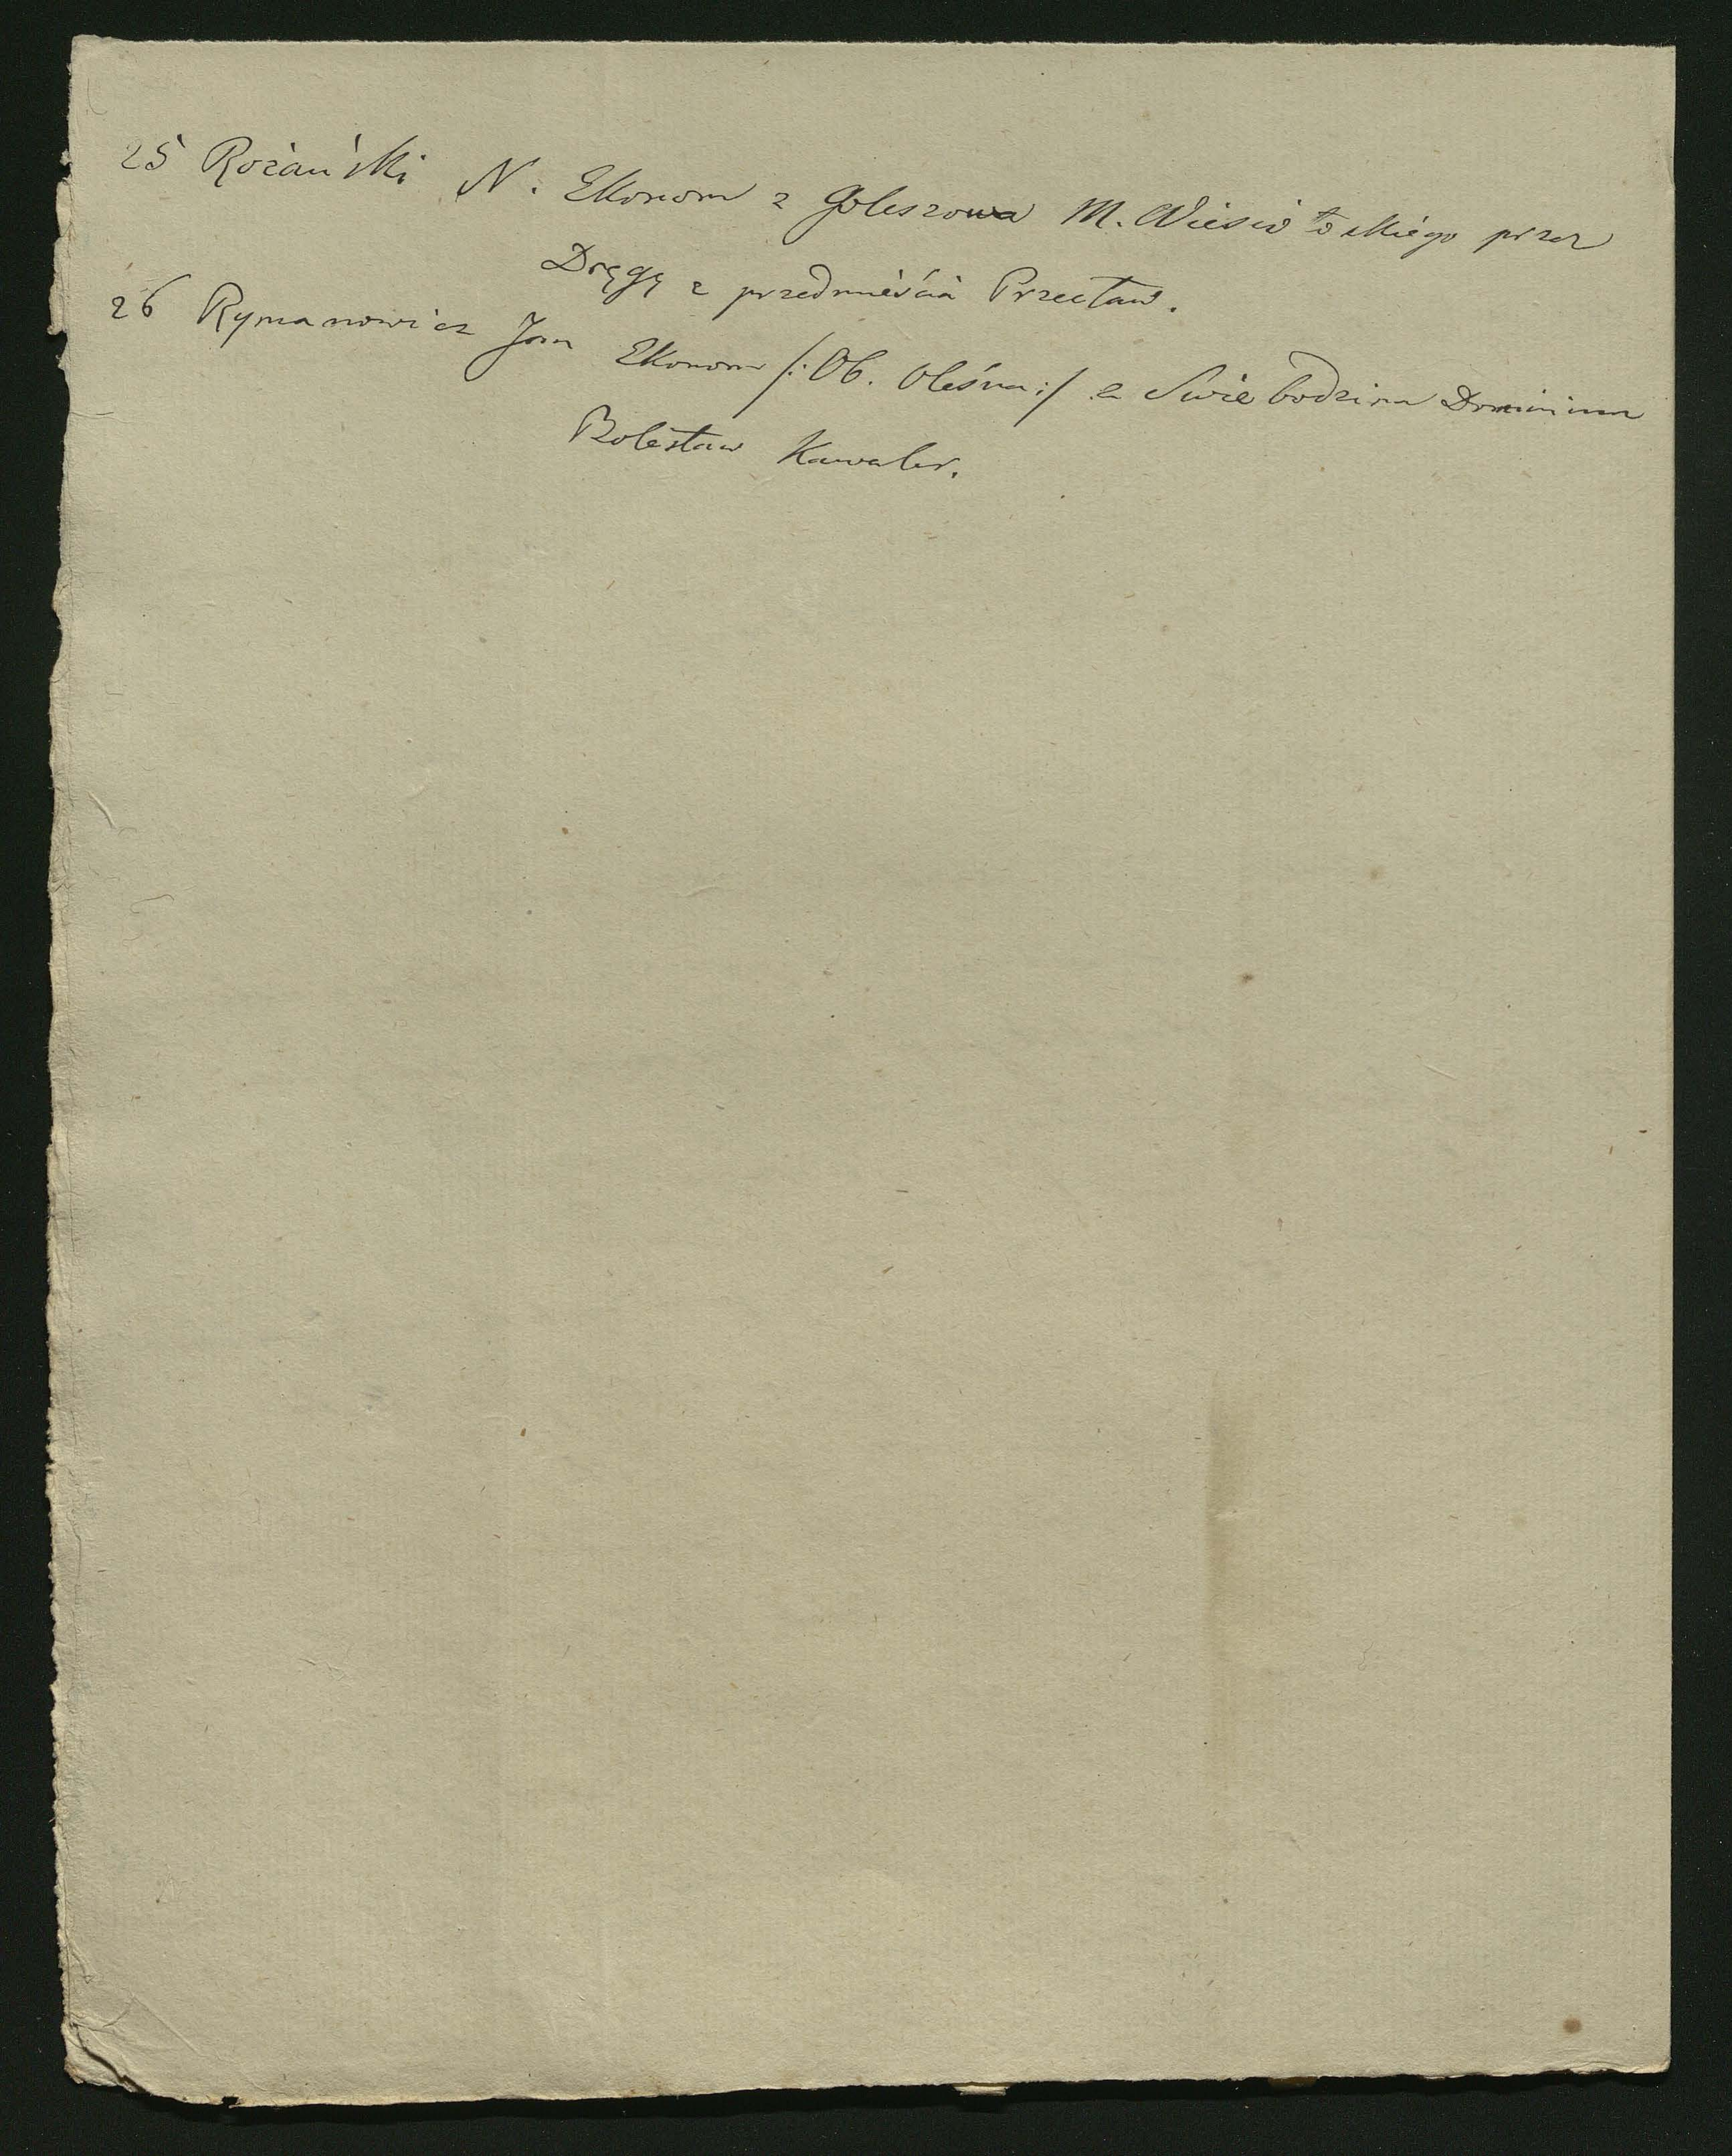 25 Rożański N. Ekonom z Goleszowa M. Wiesiołoskiego przez
Dręgę z przedmieścia Przecław.
26 Rymanowicz Jan Ekonom /: Ob. Oleśna :/ z Swiebodzina Dominium
Bolesław Kawaler.